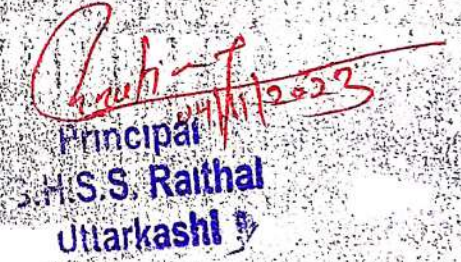 04/11/2023
Principal
G.H.S.S. Raithal
Uttarkashi